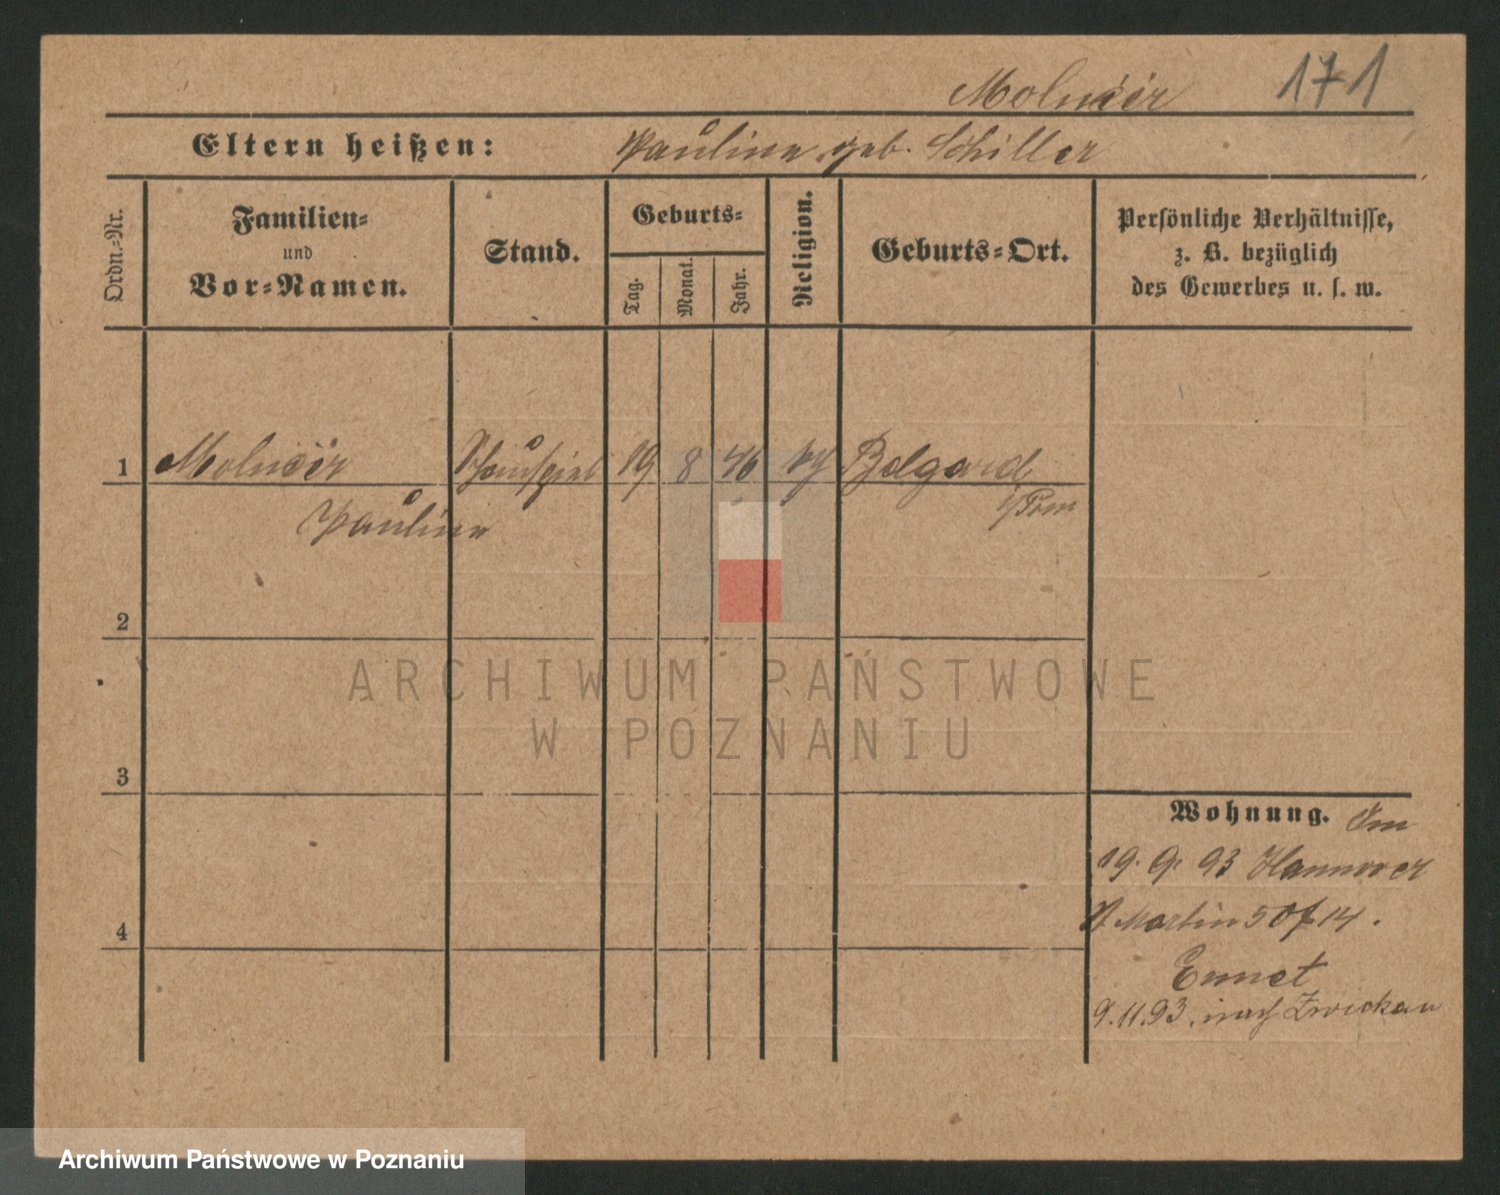 171
Eltern heißen: Pauline geb. Schiller
Ordn.-Nr.
Familien-
und
Vor-Namen.
Stand.
Geburts-
Tag.
Monat.
Jahr.
Religion.
Geburts-Ort.
Persönliche Verhältnisse,
z. B. bezüglich
des Gewerbes u. s. w.
1 19 8 46 Belgard
Pauline i/Pom
2
3
4
Wohnung.
19. 9. 93 Hannover
St Martin 50 14.
9.11.93. nach Zwickau
ARCHIWUM PAŃSTWOWE
W POZNANIU
Archiwum Państwowe w Poznaniu